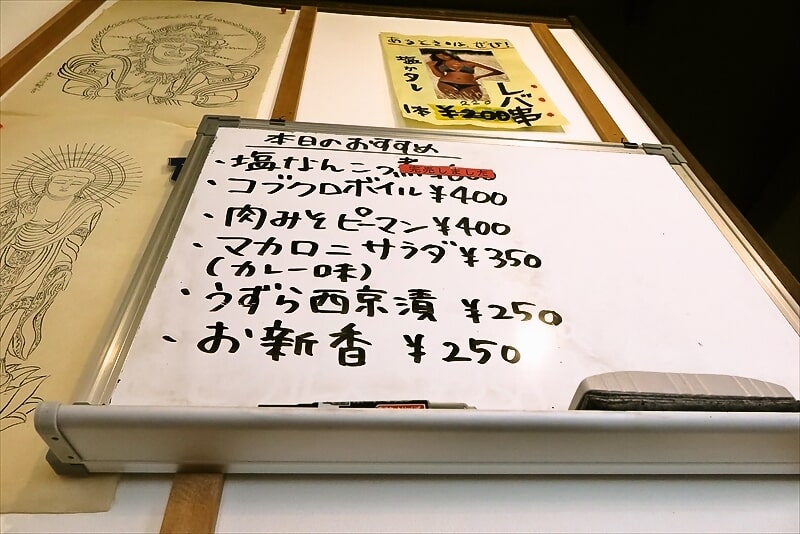 あるときは、ぜひ!
塩かタレ
レバ串
1本 ¥200
本日のおすすめ
・塩なんこつ煮
売売しました
・コブクロボイル ¥400
・肉みそピーマン ¥400
・マカロニサラダ ¥350
(カレー味)
・うずら西京漬 ¥250
・お新香 ¥250